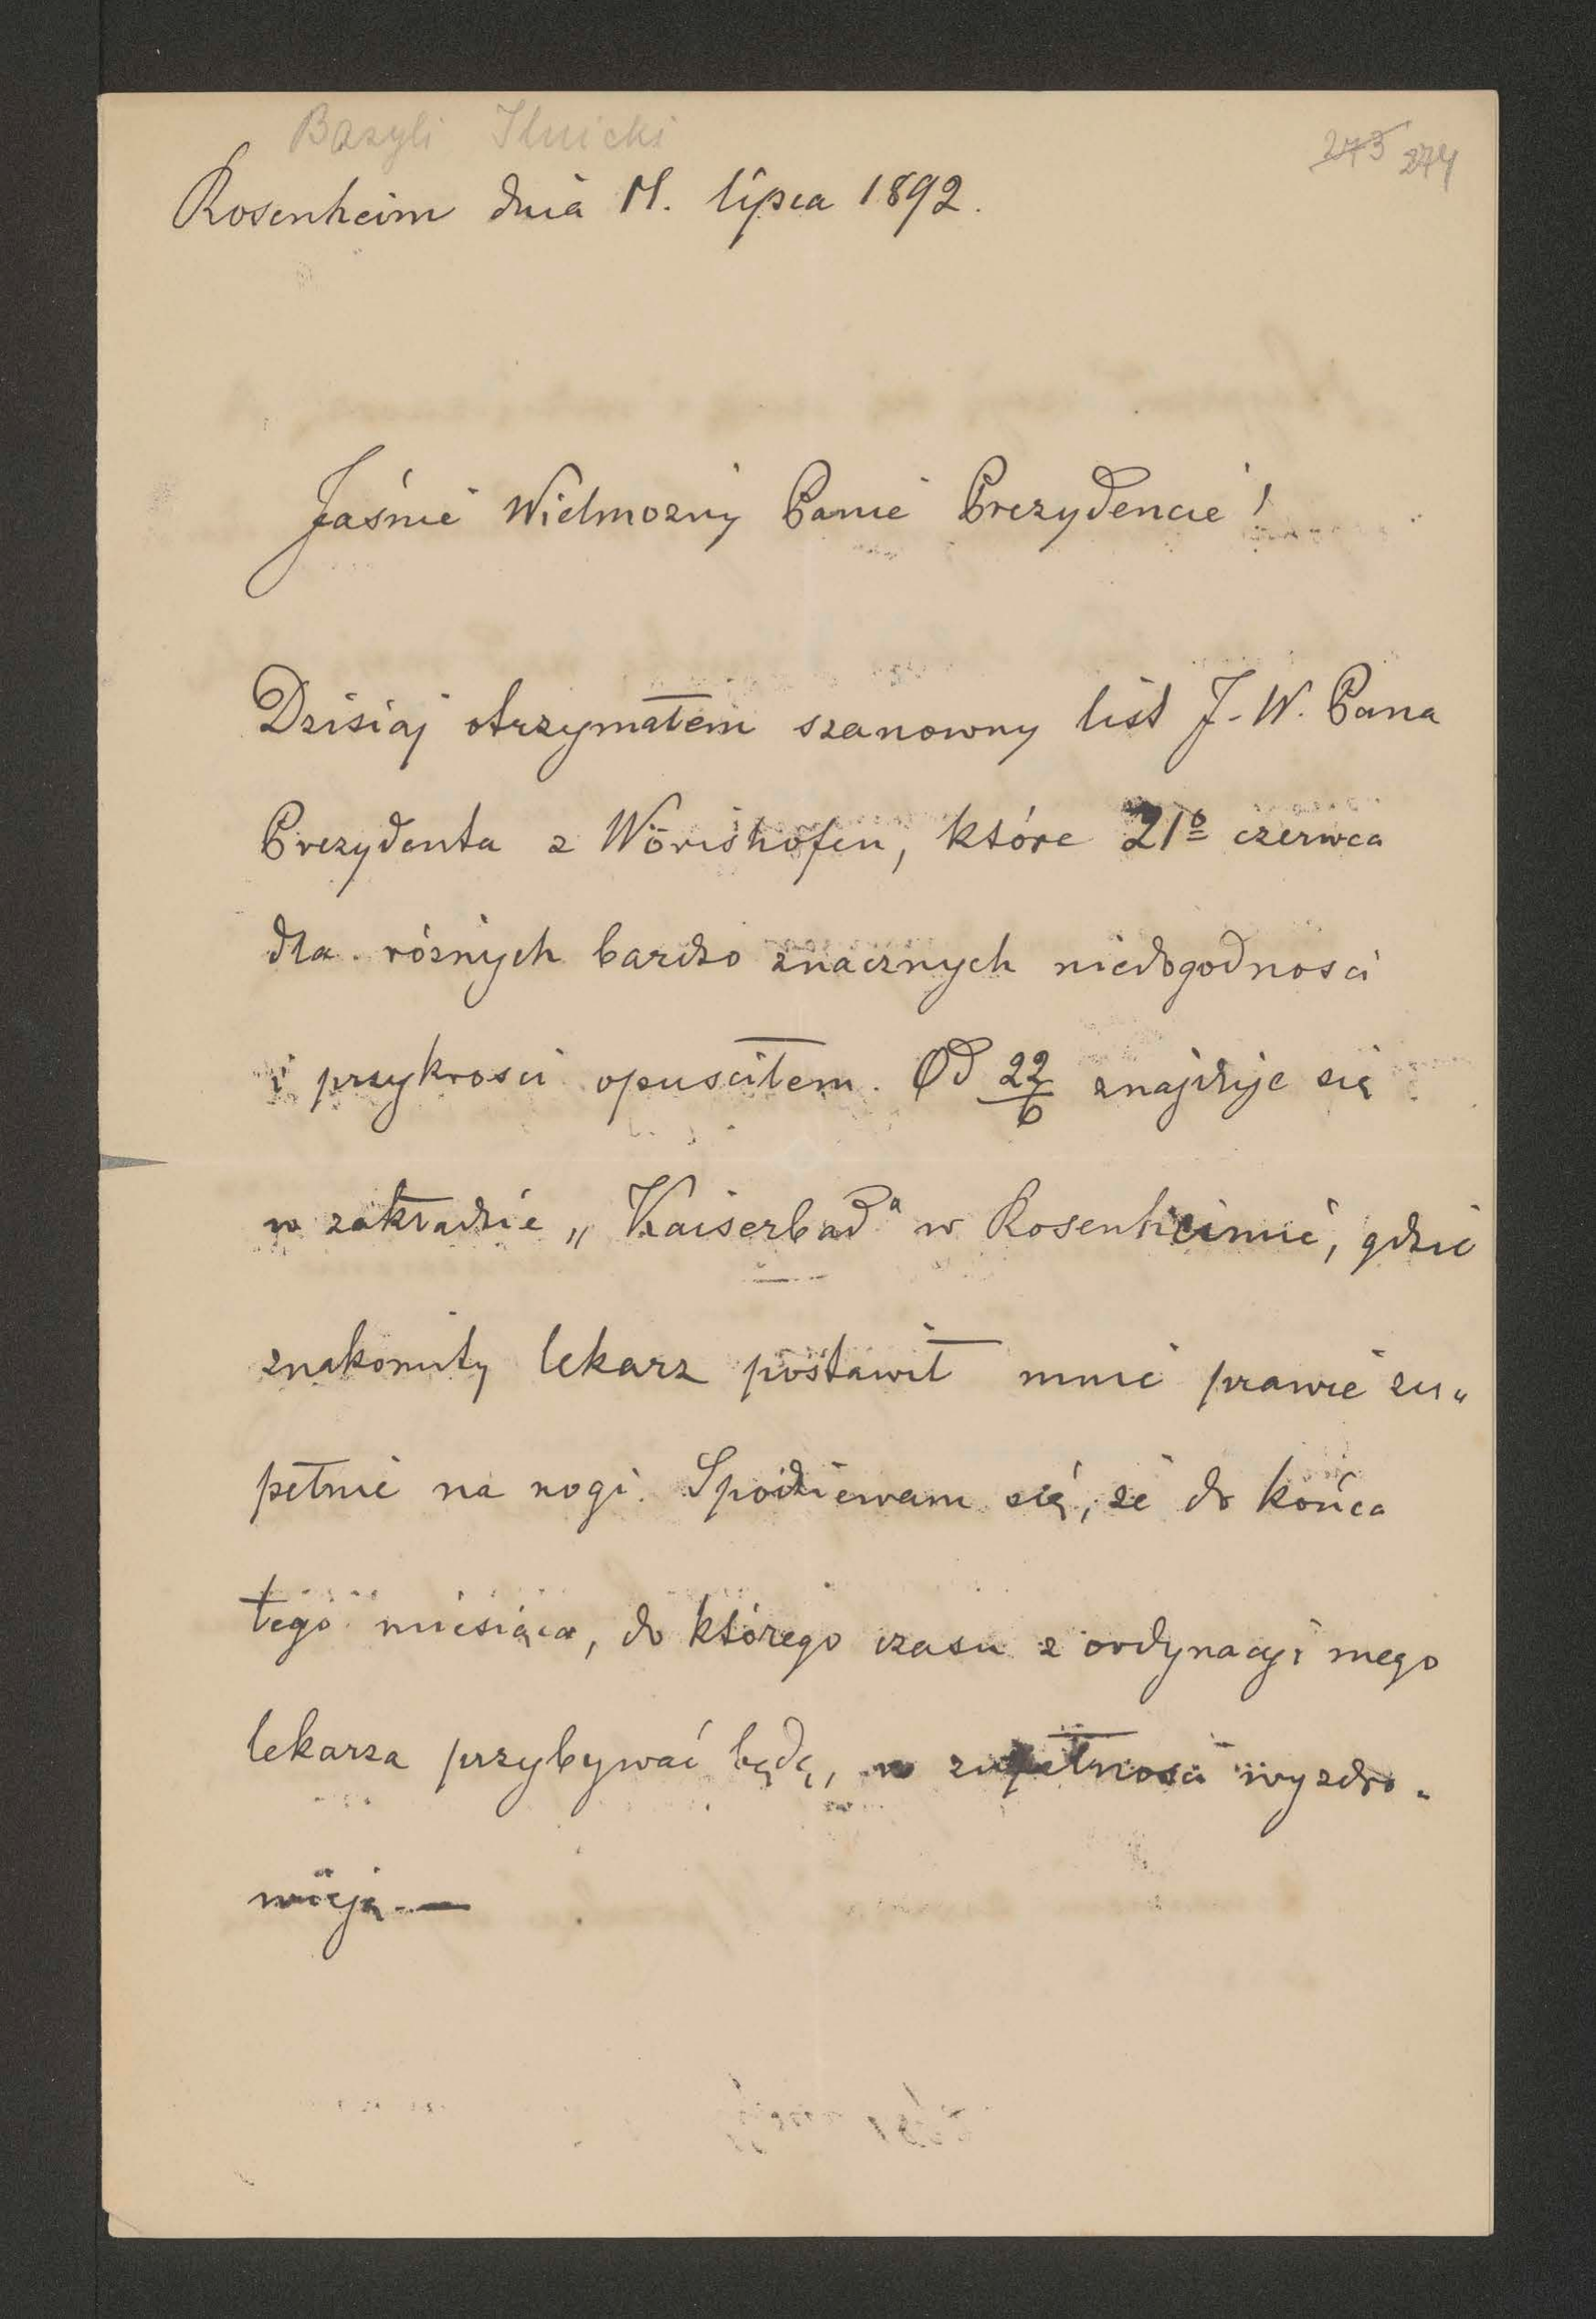 Bazyli Ilnicki
273 274
Rosenheim dnia 11. lipca 1892.
Jaśnie Wielmozny Panie Prezydencie!
Dzisiaj otrzymałem szanowny list J. W. Pana
Prezydenta z Wörishofen, które 21º czerwca
dla róznych bardzo znacznych niedogodnosci
i przykrosci opusciłem. Od 22/6 znajduje się
w zakładzie „Kaiserbad" w Rosenheimie, gdzie
znakomity lekarz postawił mnie prawie zu„
pełnie na nogi. Spodziewam się, ze do końca
tego miesiąca, do którego czasu z ordynacyi mego
lekarza przybywać będę, w zupełnosci wyzdro„
wieję. —